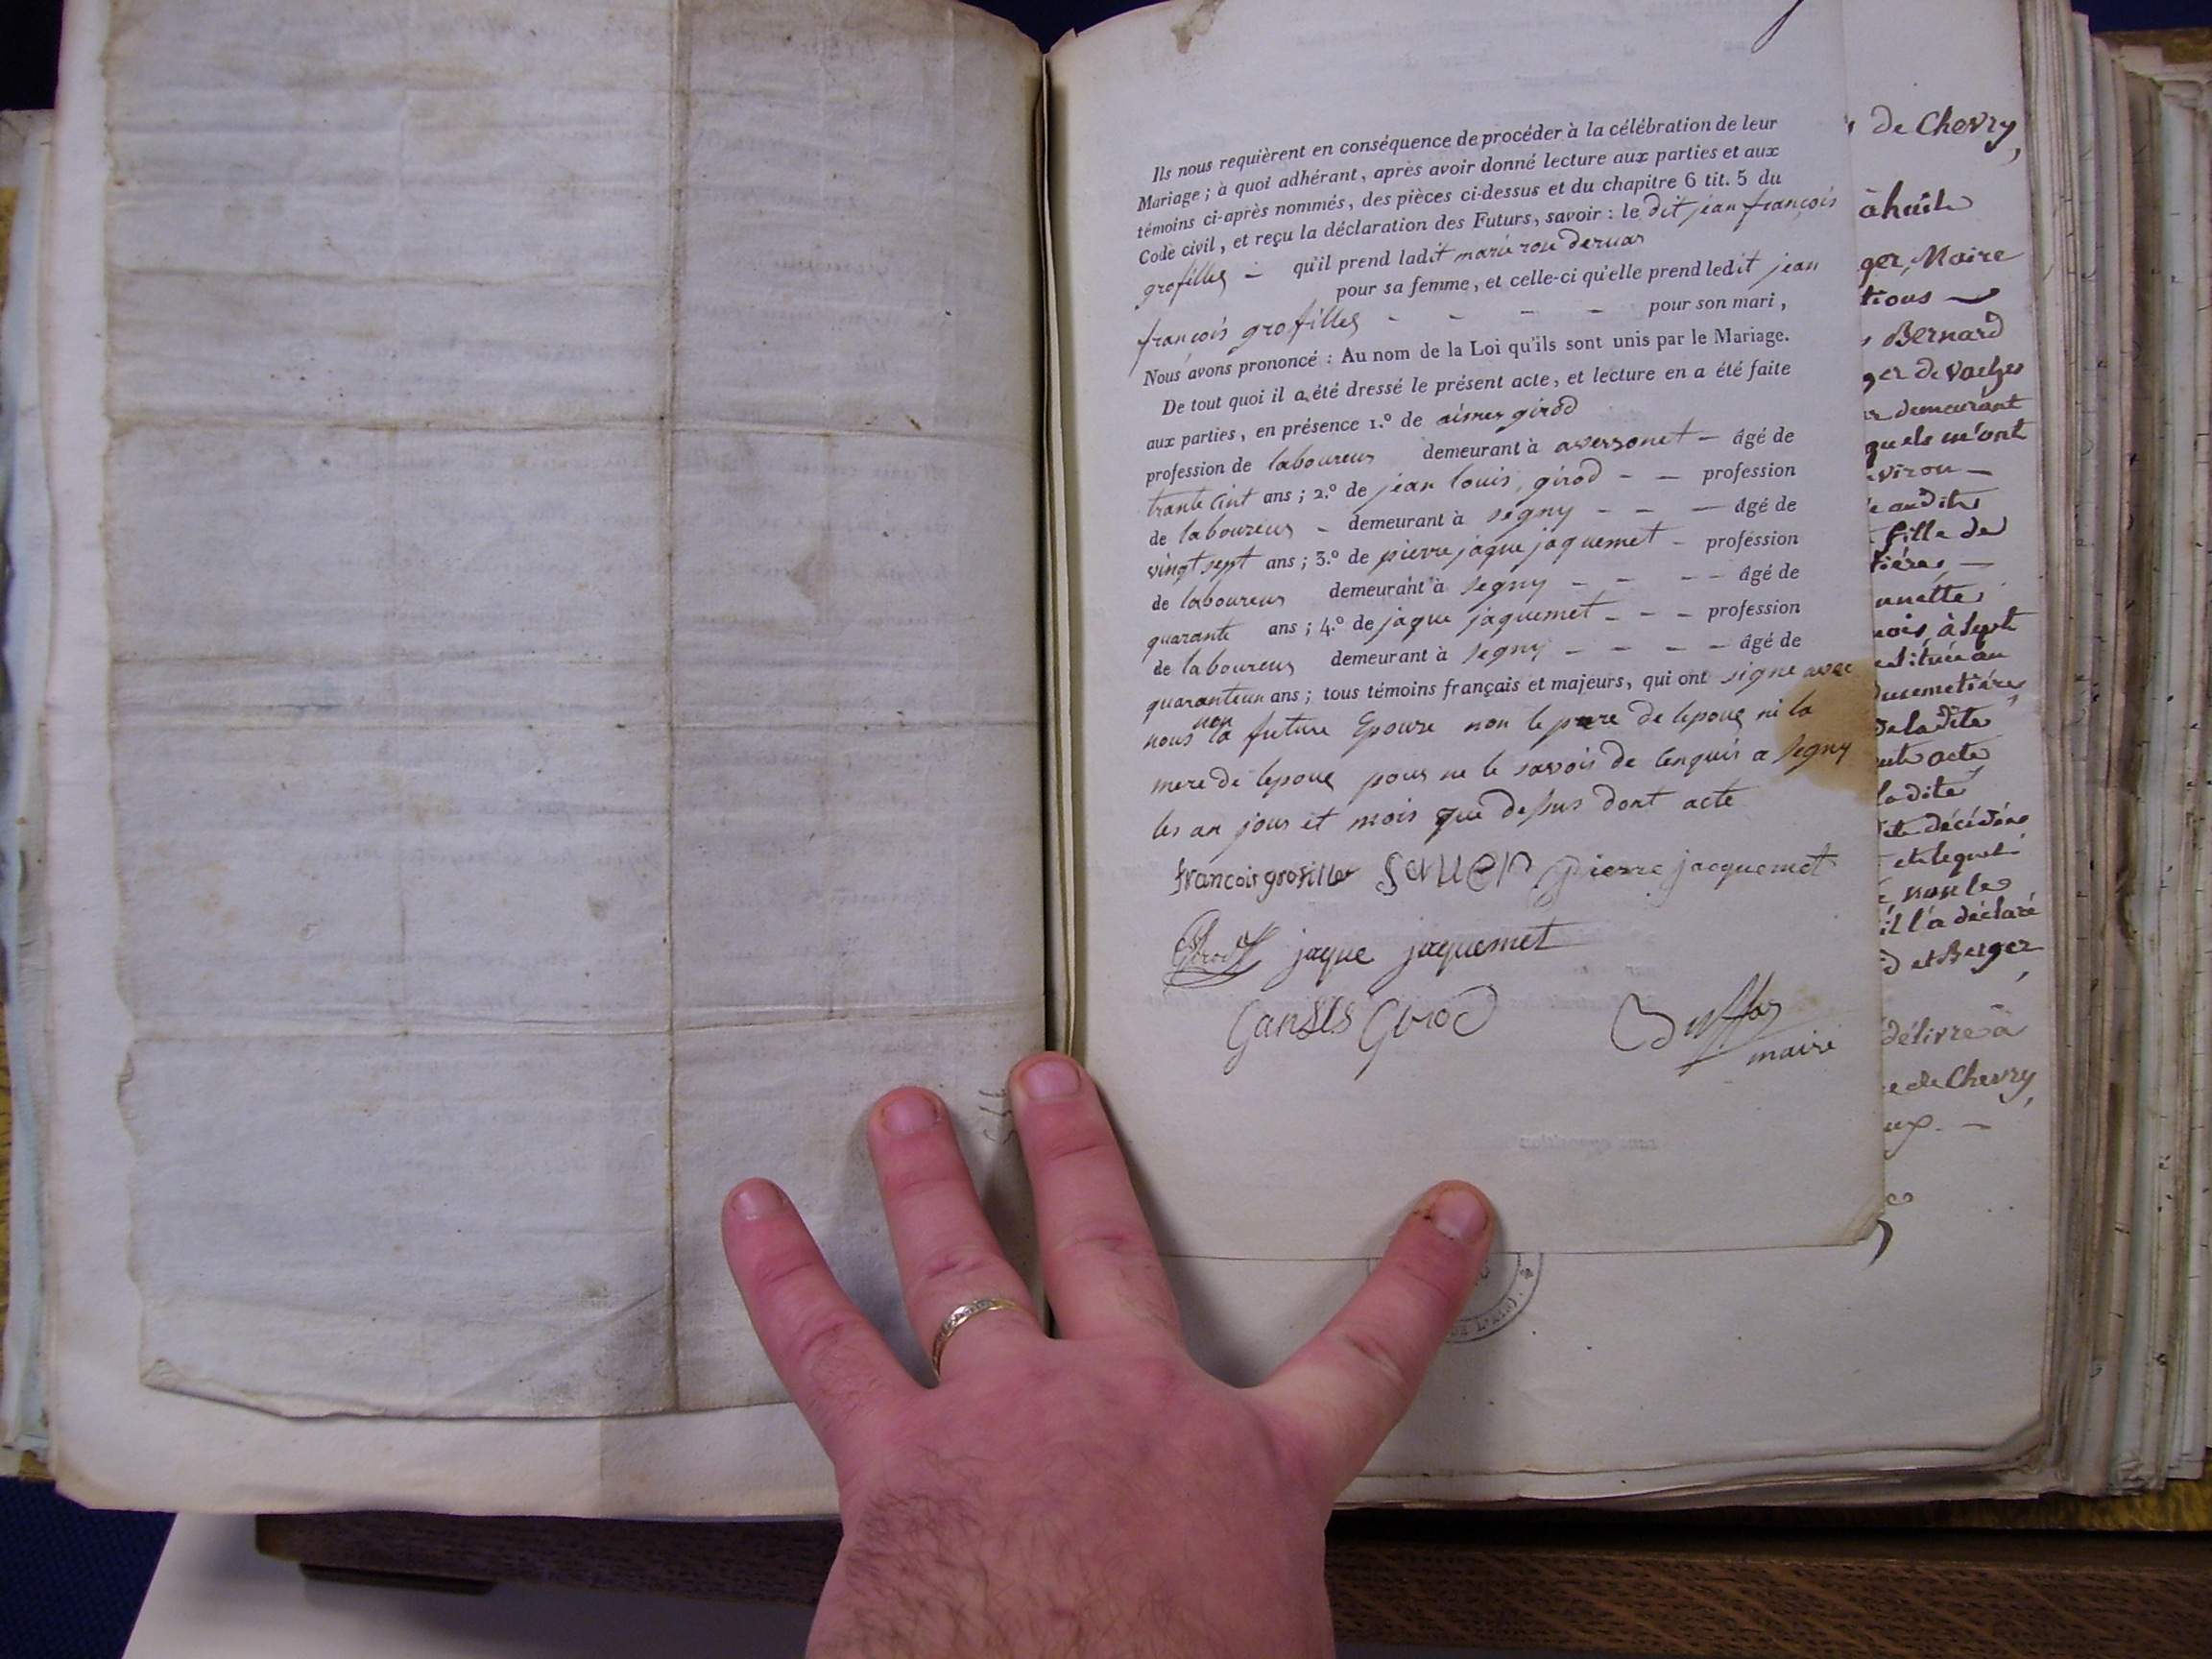 Ils nous requièrent en conséquence de procéder à la célébration de leur
Mariage ; à quoi adhérant, après avoir donné lecture aux parties et aux
témoins ci-après nommés, des pièces ci-dessus et du chapitre 6 tit. 5 du
Code civil, et reçu la déclaration des Futurs, savoir : le dit jean françois
grofilleƺ - qu'il prend ladit marie rose
pour sa femme, et celle-ci qu'elle prend ledit jean
françois grofilleƺ - - - - pour son mari,
Nous avons prononcé : Au nom de la Loi qu'ils sont unis par le Mariage.
De tout quoi il a été dressé le présent acte, et lecture en a été faite
aux parties, en présence 1.º de aimer girod
profession de laboureur demeurant à aversonet - âgé de
trante cint ans ; 2.º de jean louis, girod - - profession
de laboureur - demeurant à segny - - - âgé de
vingt sept ans ; 3.º de pierre jaque jaquemet - profession
de laboureur demeurant à segny - - - - âgé de
quarante ans ; 4.º de jaque jaquemet - - - profession
de laboureur demeurant à segny - - - - âgé de
quaranteun ans ; tous témoins français et majeurs, qui ont signe avec
nous non la future Epouze non le pere de lepouƺ ni la
mere de lepouƺ pour ne le savoir de lenquis a segny
les an jour et mois que dessus dont acte
francois grosiller pierre jacquemet
Girod jaque jaquemet
Girod
maire
de Chevry,
à huit
ger, Maire
tions -
Bernard
ger de Vaches
demeurant
quels m'ont
viron -
audit
fille de
tière, -
nnette
mois, à sept
situé au
du cemetière
de la dite
acte
la dite
décédée
et lequel
non le
il l'a déclaré
d et Berger
délivré à
e de Chevry,